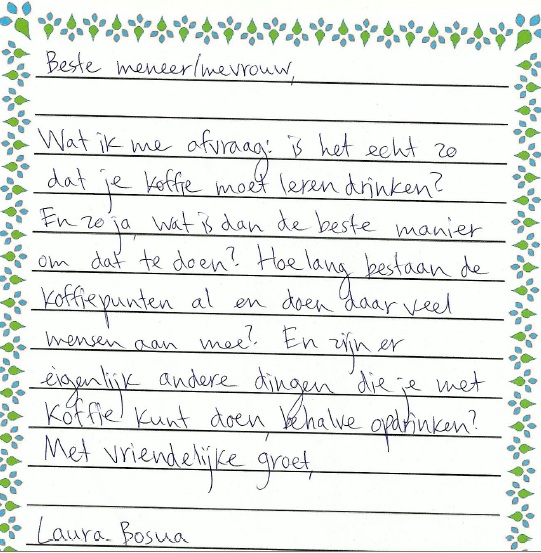 Beste meneer/mevrouw,
Wat ik me afvraag: is het echt zo
dat je koffie moet leren drinken?
En zo ja, wat is dan de beste manier
om dat te doen? Hoe lang bestaan de
koffiepunten al en doen daar veel
mensen aan mee? En zijn er
eigenlijk andere dingen die je met
koffie kunt doen, behalve opdrinken?
Met vriendelijke groet,
Laura Bosua